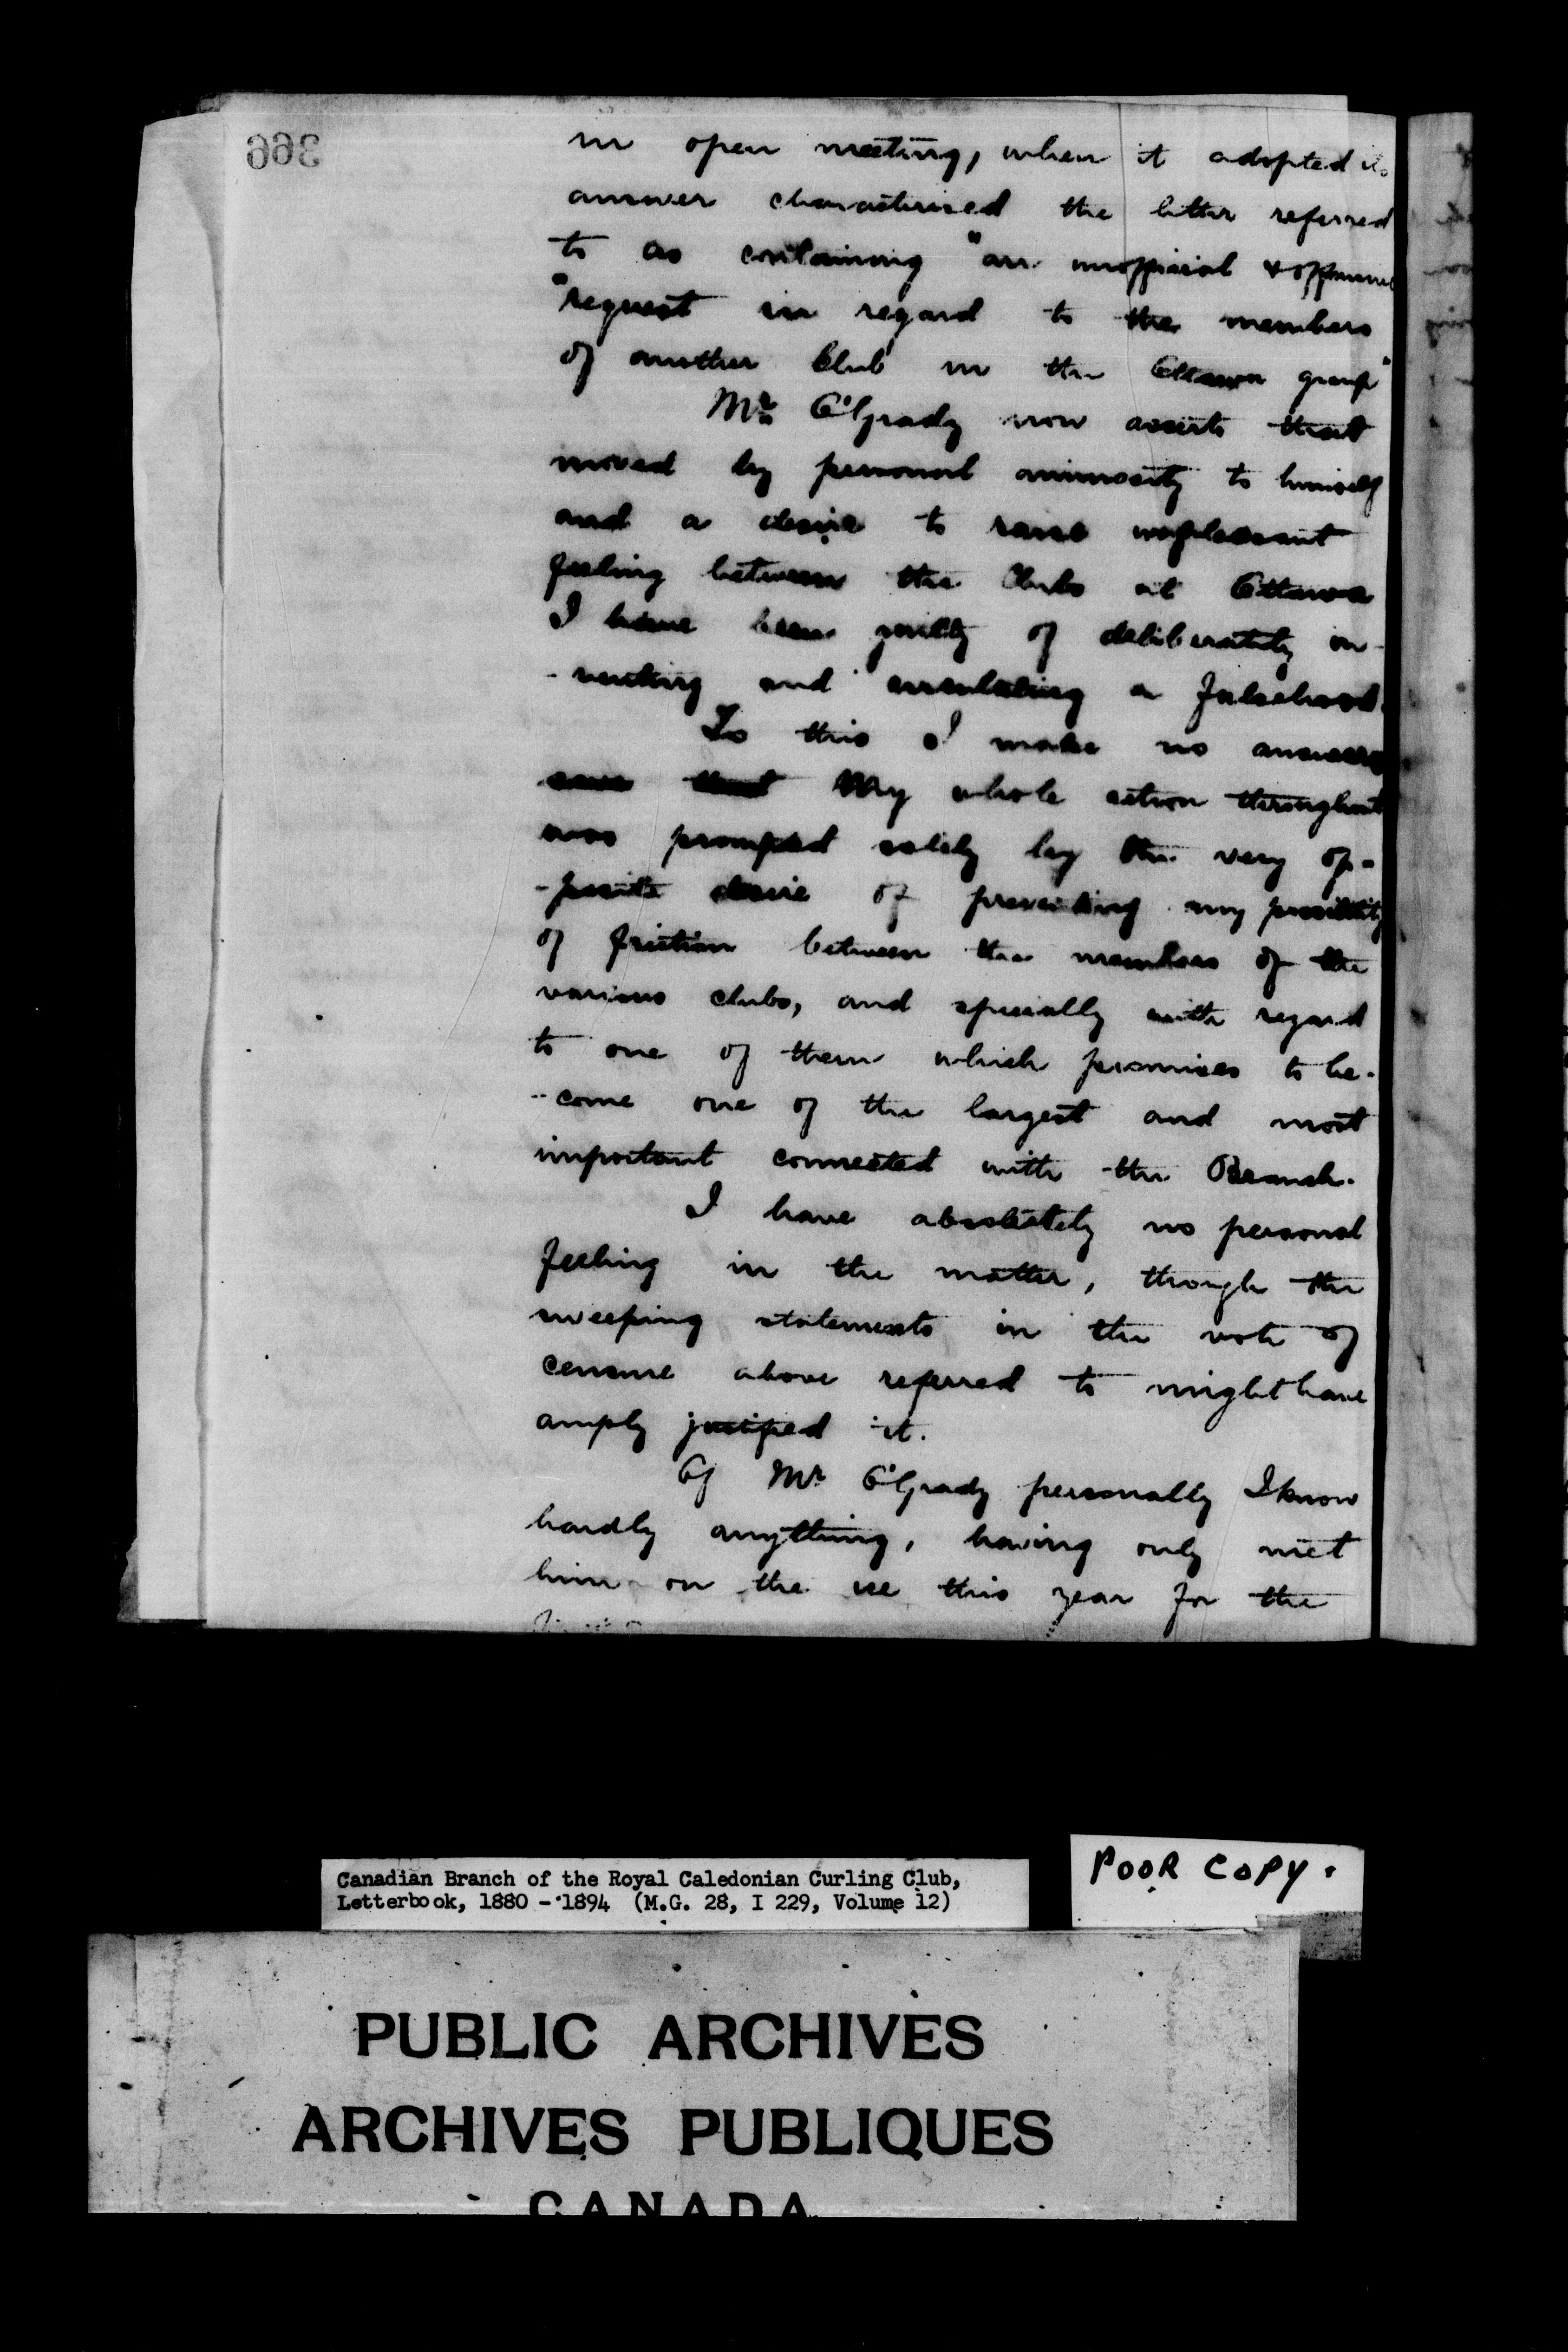 366
in open meeting, when it adopted its
answer characterised the letter referred
to as containing "an unofficial &
"request in regard to the members
of another Club in the Ottawa group"
Mr. O'Grady now asserts that
moved by personal animosity to himself
and a desire to raise unpleasant
feeling between the Clubs at Ottawa
I have been guilty of deliberately in-
-venting and circulating a falsehood.
To this I make no answer
save that My whole action throughout
was prompted solely by the very op-
-posite desire of preventing any possibility
of friction between the members of the
various clubs, and specially with regard
to one of them which promises to be-
-come one of the largest and most
important connected with the Branch.
I have absolutely no personal
feeling in the matter, though the
sweeping statements in the vote of
censure above referred to might have
amply justified it.
Of Mr O'Grady personally I know
hardly anything, having only met
him on the ice this year for the
Canadian Branch of the Royal Caledonian Curling Club,
Letterbook, 1880 - 1894 (M.G. 28, I 229, Volume 12)
POOR COPY.
PUBLIC ARCHIVES
ARCHIVES PUBLIQUES
CANADA